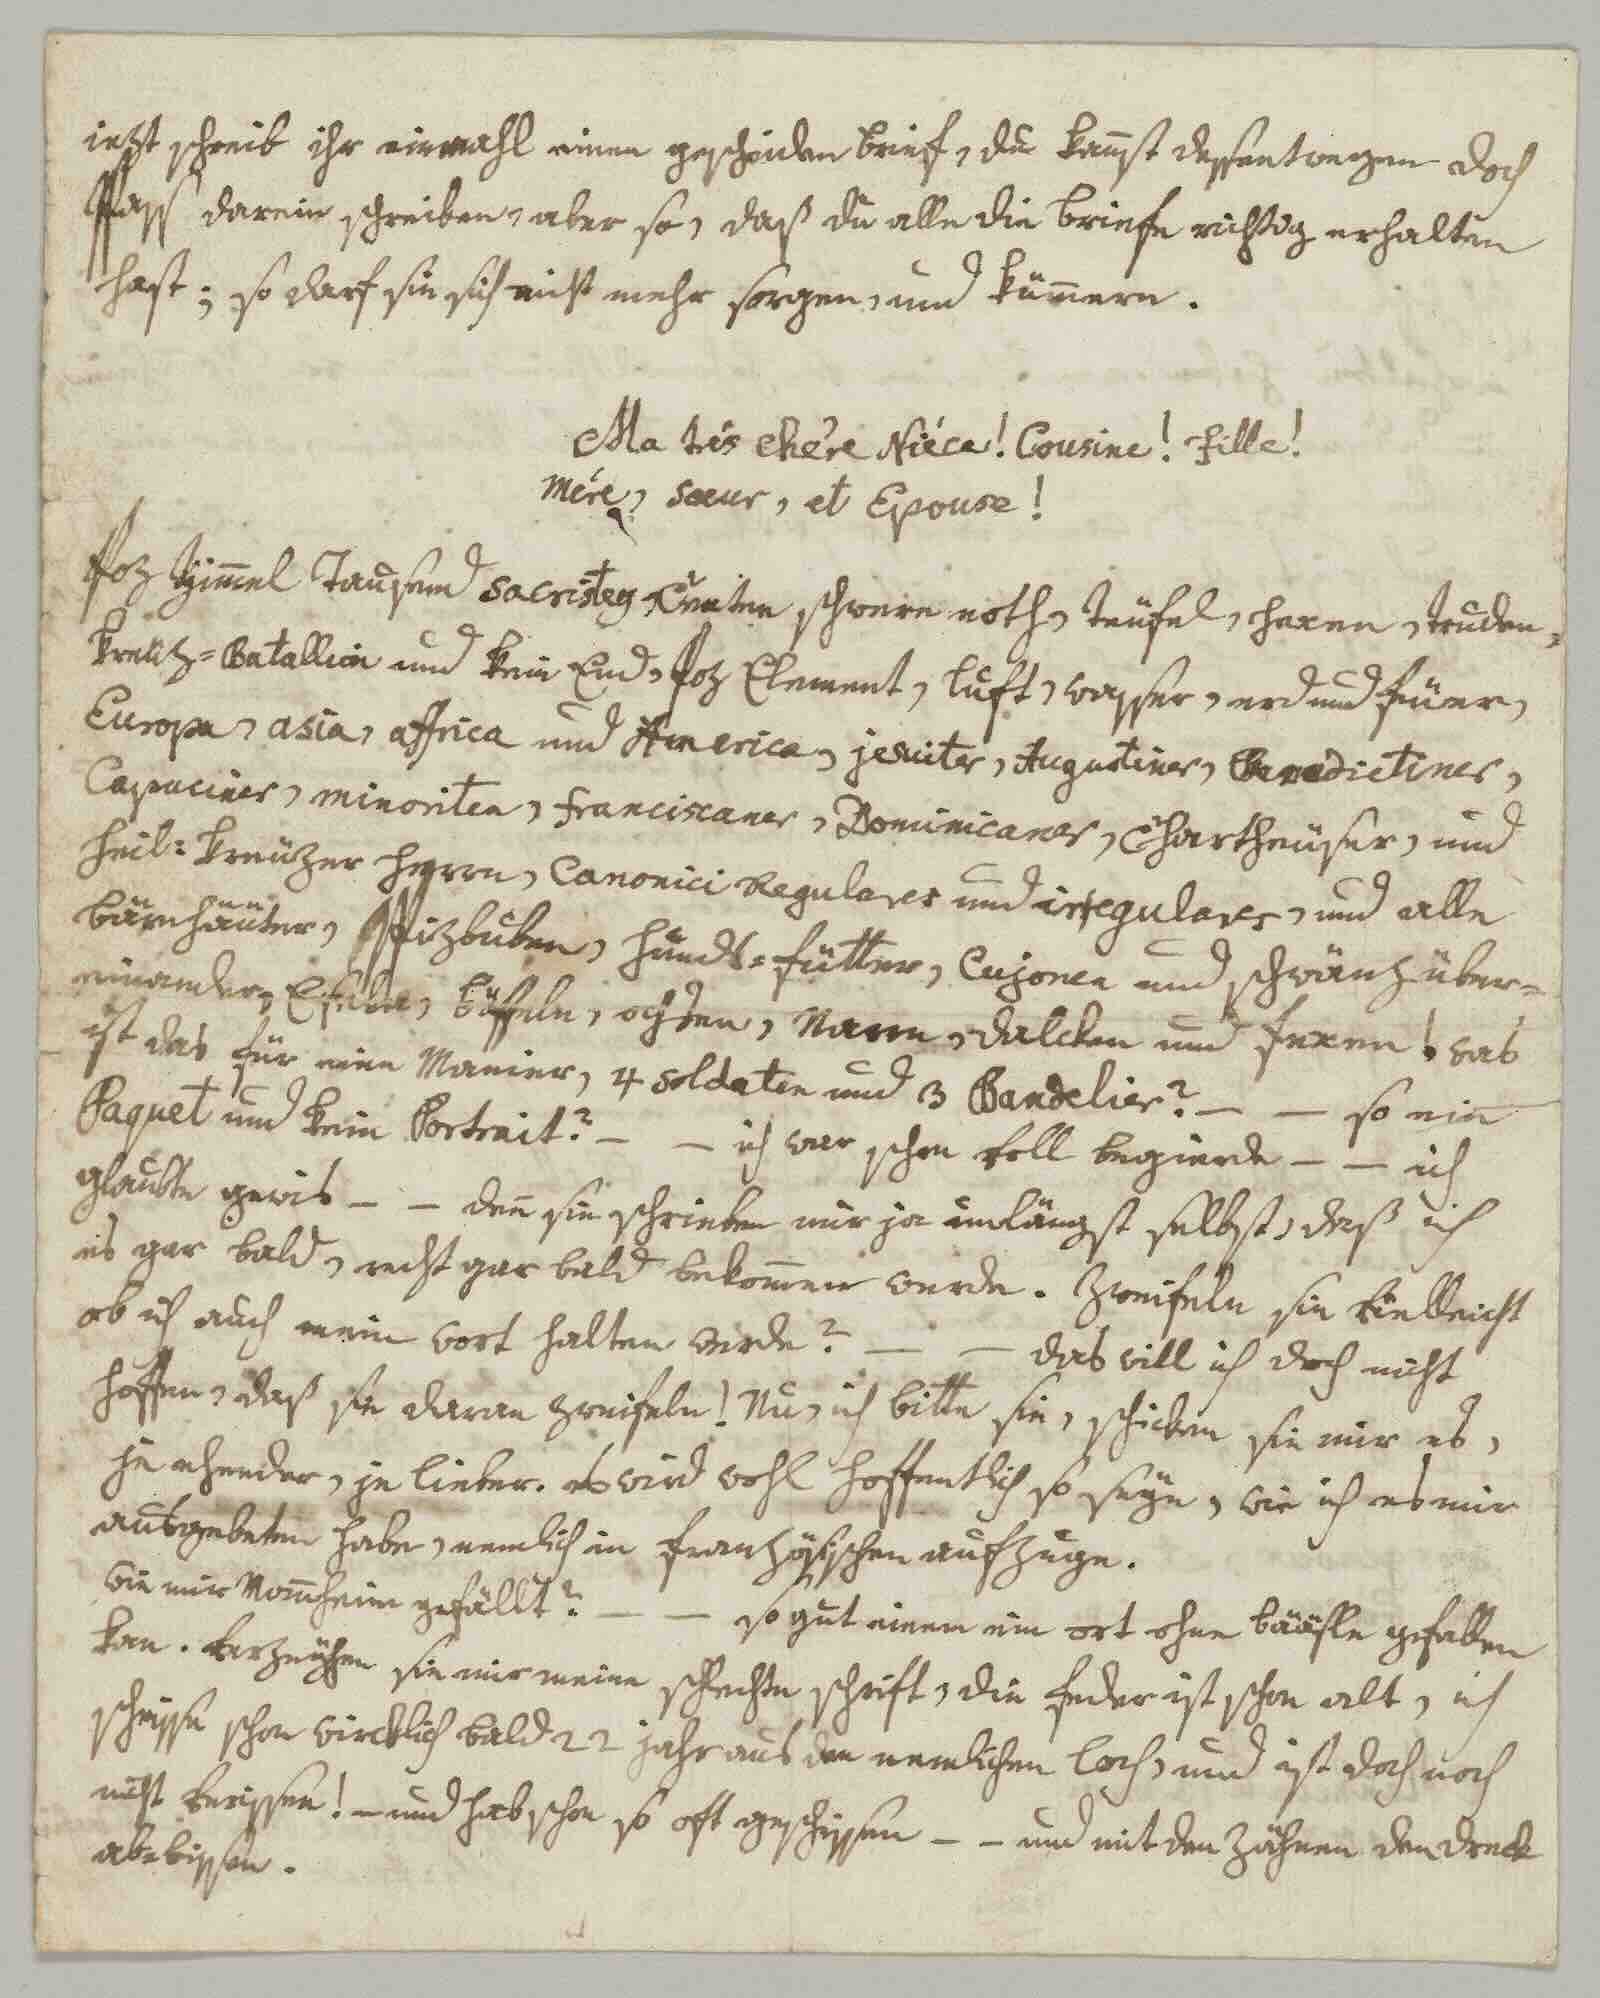 iezt schreib ihr einmahl einen gescheiden brief, du kanst dessentwegen doch
spass darein schreiben, aber so, daß du alle die briefe richtig erhalten
hast; so darf sie sich nicht mehr sorgen, und kümmern.
Ma très chère Niéce! Cousine! fille!
Mére, sœur, et Epouse!
Poz Himmel Tausend sacristey, Cruaten schwere noth, teüfel, hexen, truden,
kreüz=Battallion und kein End, Poz Element, luft, wasser, erd und feüer,
Europa, asia, affrica und America, jesuiter, Augustiner, Benedictiner,
Capuciner, minoriten, franciscaner, Dominicaner, Chartheüser, und
heil: kreüzer herrn, Canonici Regulares und iregulares, und alle
bärnhäüter, spizbuben, hundsfütter, Cujonen und schwänz über=
einander, Eseln, büffeln, ochsen, Narrn, dalcken und fuxen! was
ist das für eine Manier, 4 soldaten und 3 Bandelier? — — so ein
Paquet und kein Portrait? — — ich war schon voll begierde — — ich
glaubte gewis — — denn sie schrieben mir ja unlängst selbst, daß ich
es gar bald, recht gar bald bekommen werde. Zweifeln sie vielleicht
ob ich auch mein wort halten werde? — — das will ich doch nicht
hoffen, daß sie daran zweifeln! Nu, ich bitte sie, schicken sie mir es,
je ehender, je lieber. es wird wohl hoffentlich so seyn, wie ich es mir
ausgebeten habe, nemlich in französischen aufzuge.
wie mir Mannheim gefällt? — — so gut einem ein ort ohne bääsle gefallen
kan. Verzeihen sie mir meine schlechte schrift, die feder ist schon alt, ich
scheisse schon wircklich bald 22 jahr aus den nemlichen loch, und ist doch noch
nicht verissen! — und hab schon so oft geschissen — — und mit den Zähnen den dreck
ab=bissen.